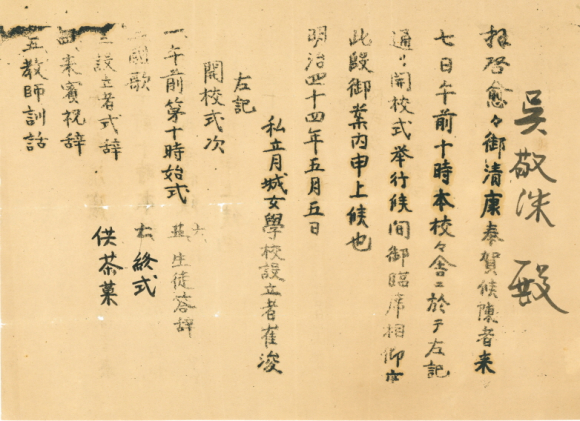 吳敬洙 殿
拜啓愈々御清康奉賀候陳者来
七日午前十時本校々舎ニ於テ左記
通リ開校式挙行候間御臨席相仰
此段御案内申上候也
明治四十四年五月五日
私立月城女學校設立者崔浚
左記
開校式次
一、午前第十時始式
國歌
設立者式辞
四、来賓祝辞
五、教師訓話
六、生徒答辞
終式
供茶菓